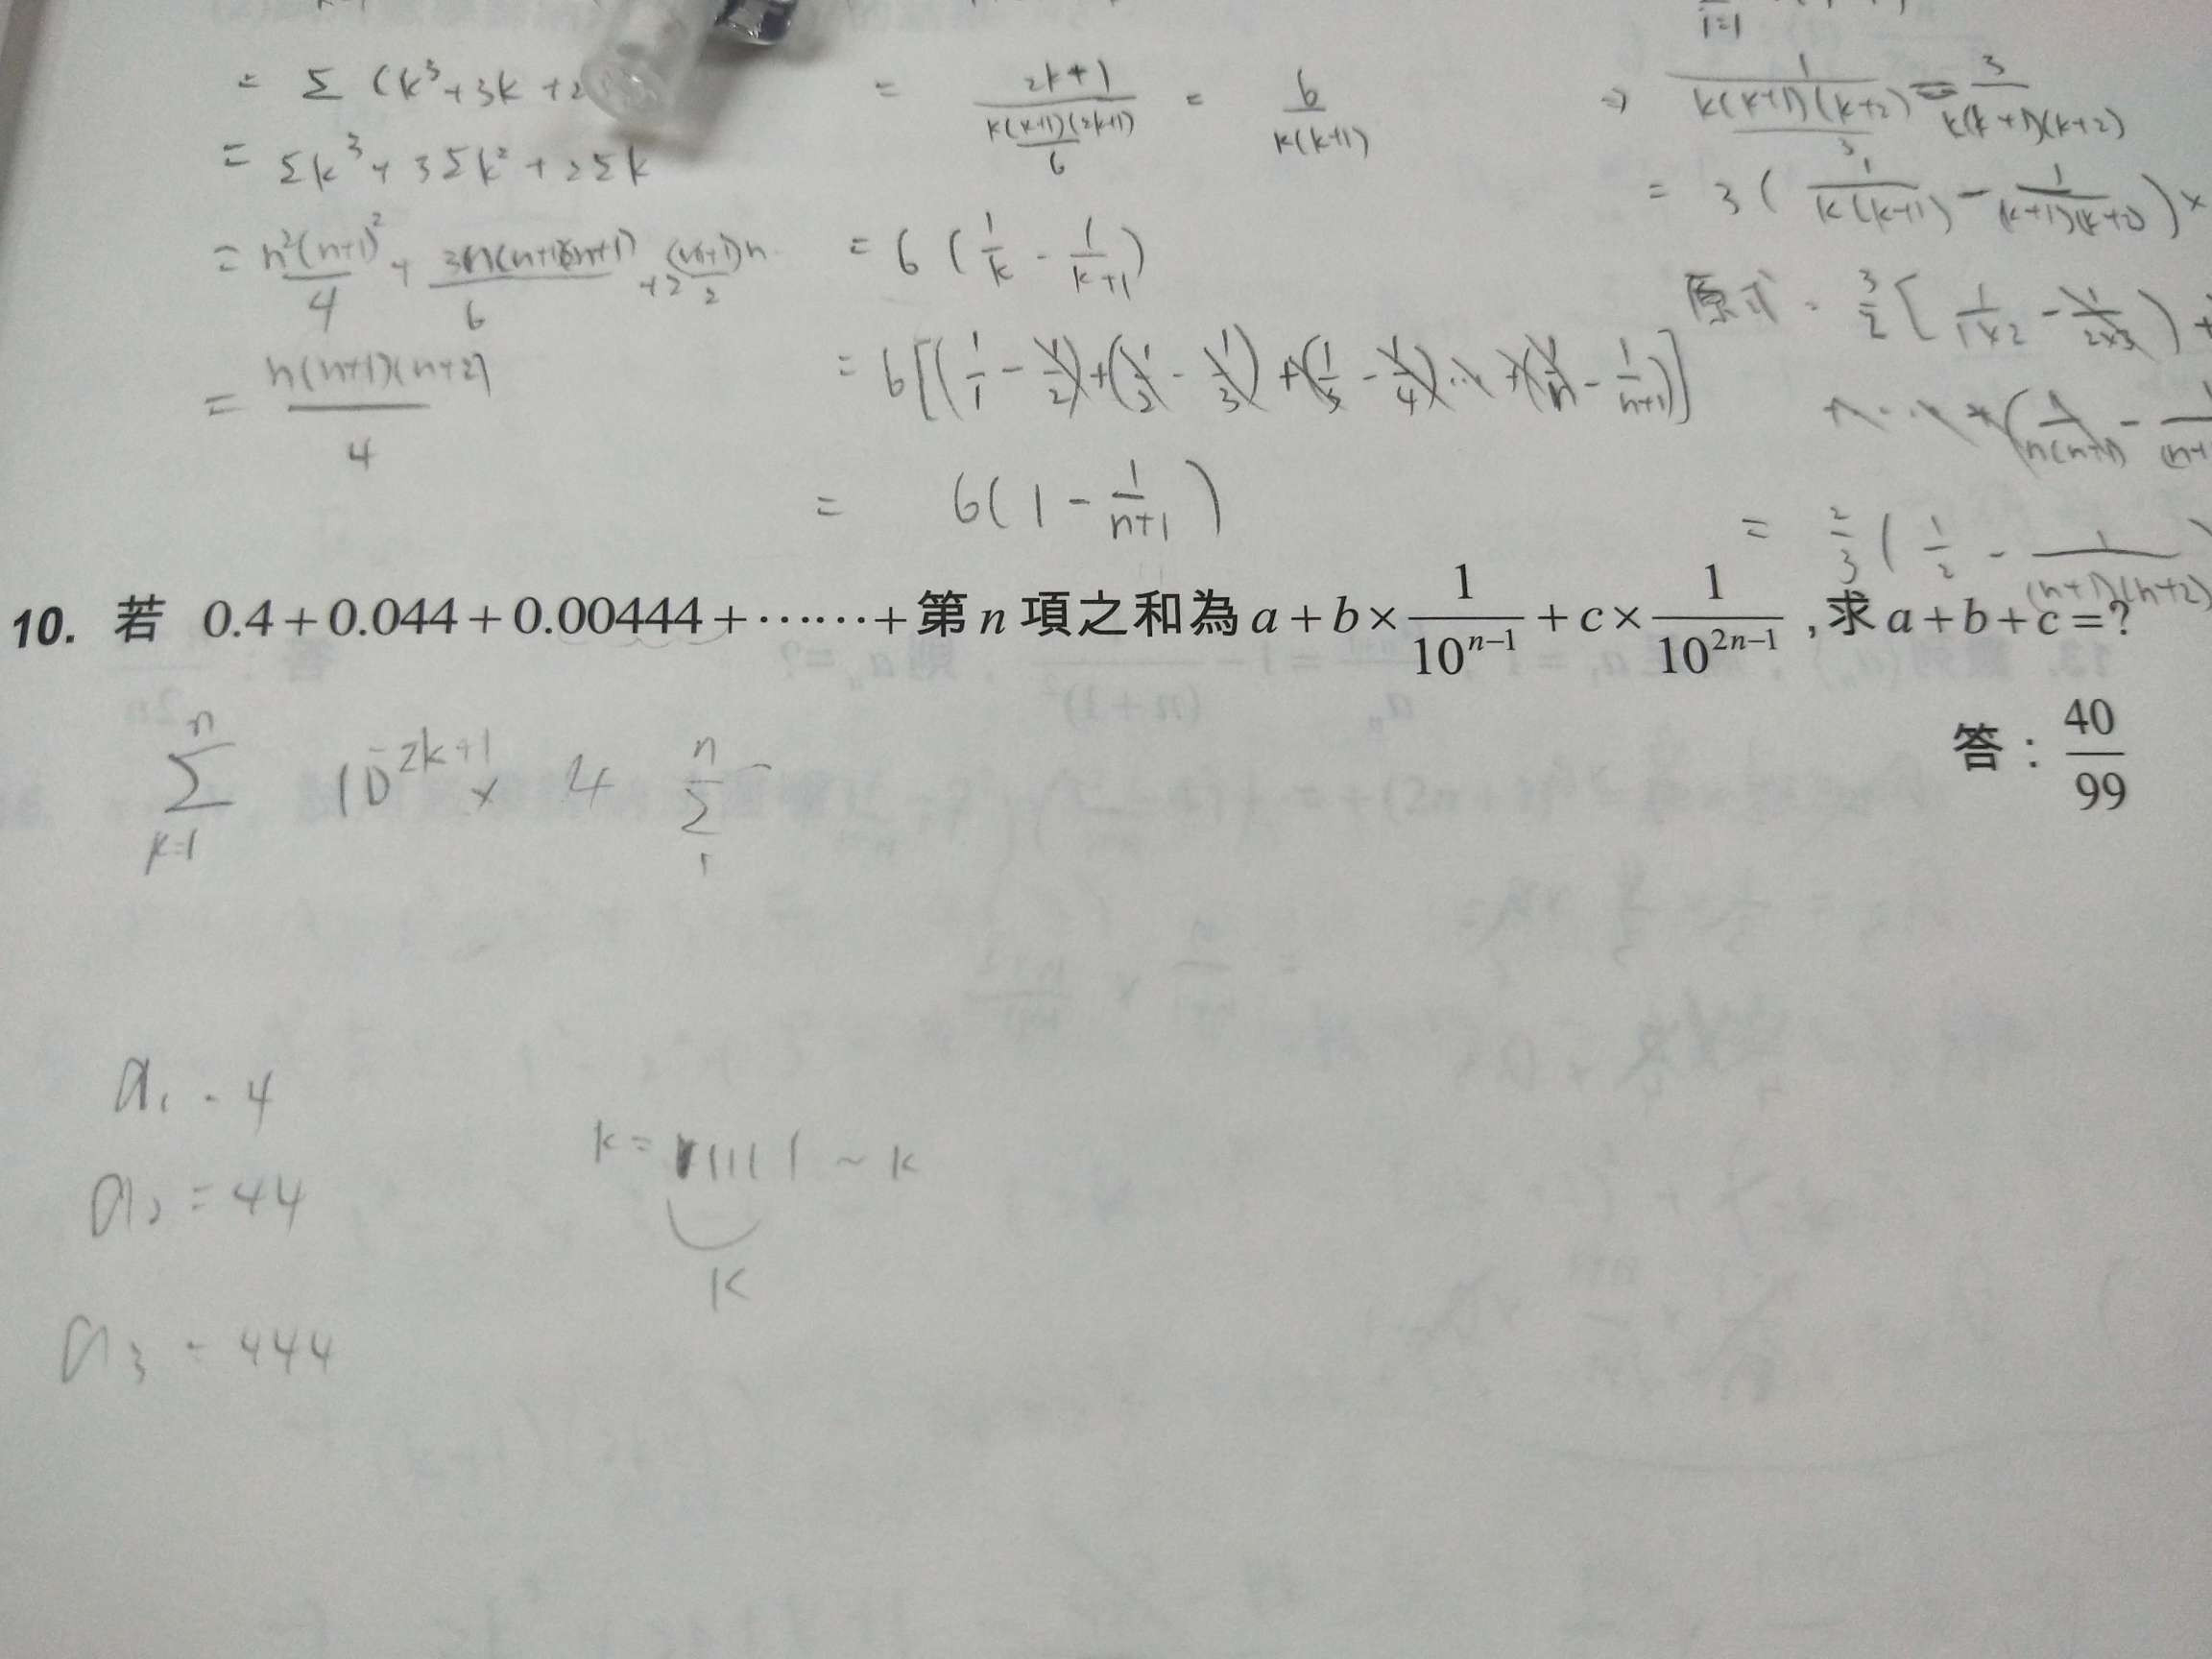 i=1
= Σ (k³+3k+2
= Σk³+3Σk²+2Σk
= n²(n+1)²/4 + 3n(n+1)(2n+1)/6 +2 (n+1)n/2
= n(n+1)(n+2)/4
= 2k+1/(k(k+1)(2k+1)/6) = 6/k(k+1)
= 6 (1/k - 1/k+1)
= 6[(1/1 - 1/2)+(1/2 - 1/3)+(1/3 - 1/4)...+(1/n - 1/n+1)]
= 6(1 - 1/n+1)
⇒ 1/(k(k+1)(k+2)/3) = 3/k(k+1)(k+2)
= 3( 1/k(k+1) - 1/(k+1)(k+2) )×
原式 = 3/2 [ 1/1×2 - 1/2×3 ) +
+ ... + ( 1/n(n+1) - 1/(n+1
= 2/3 ( 1/2 - 1/(n+1)(n+2) )
10. 若 0.4+0.044+0.00444+⋯⋯+第 n 項之和為 a+b×1/10ⁿ⁻¹+c×1/10²ⁿ⁻¹ ,求 a+b+c=?
答：40/99
n Σ k=1 10^-2k+1 × 4 n Σ 1 -
a₁ = 4
a₂ = 44
a₃ = 444
k = 11111 ~ k
k